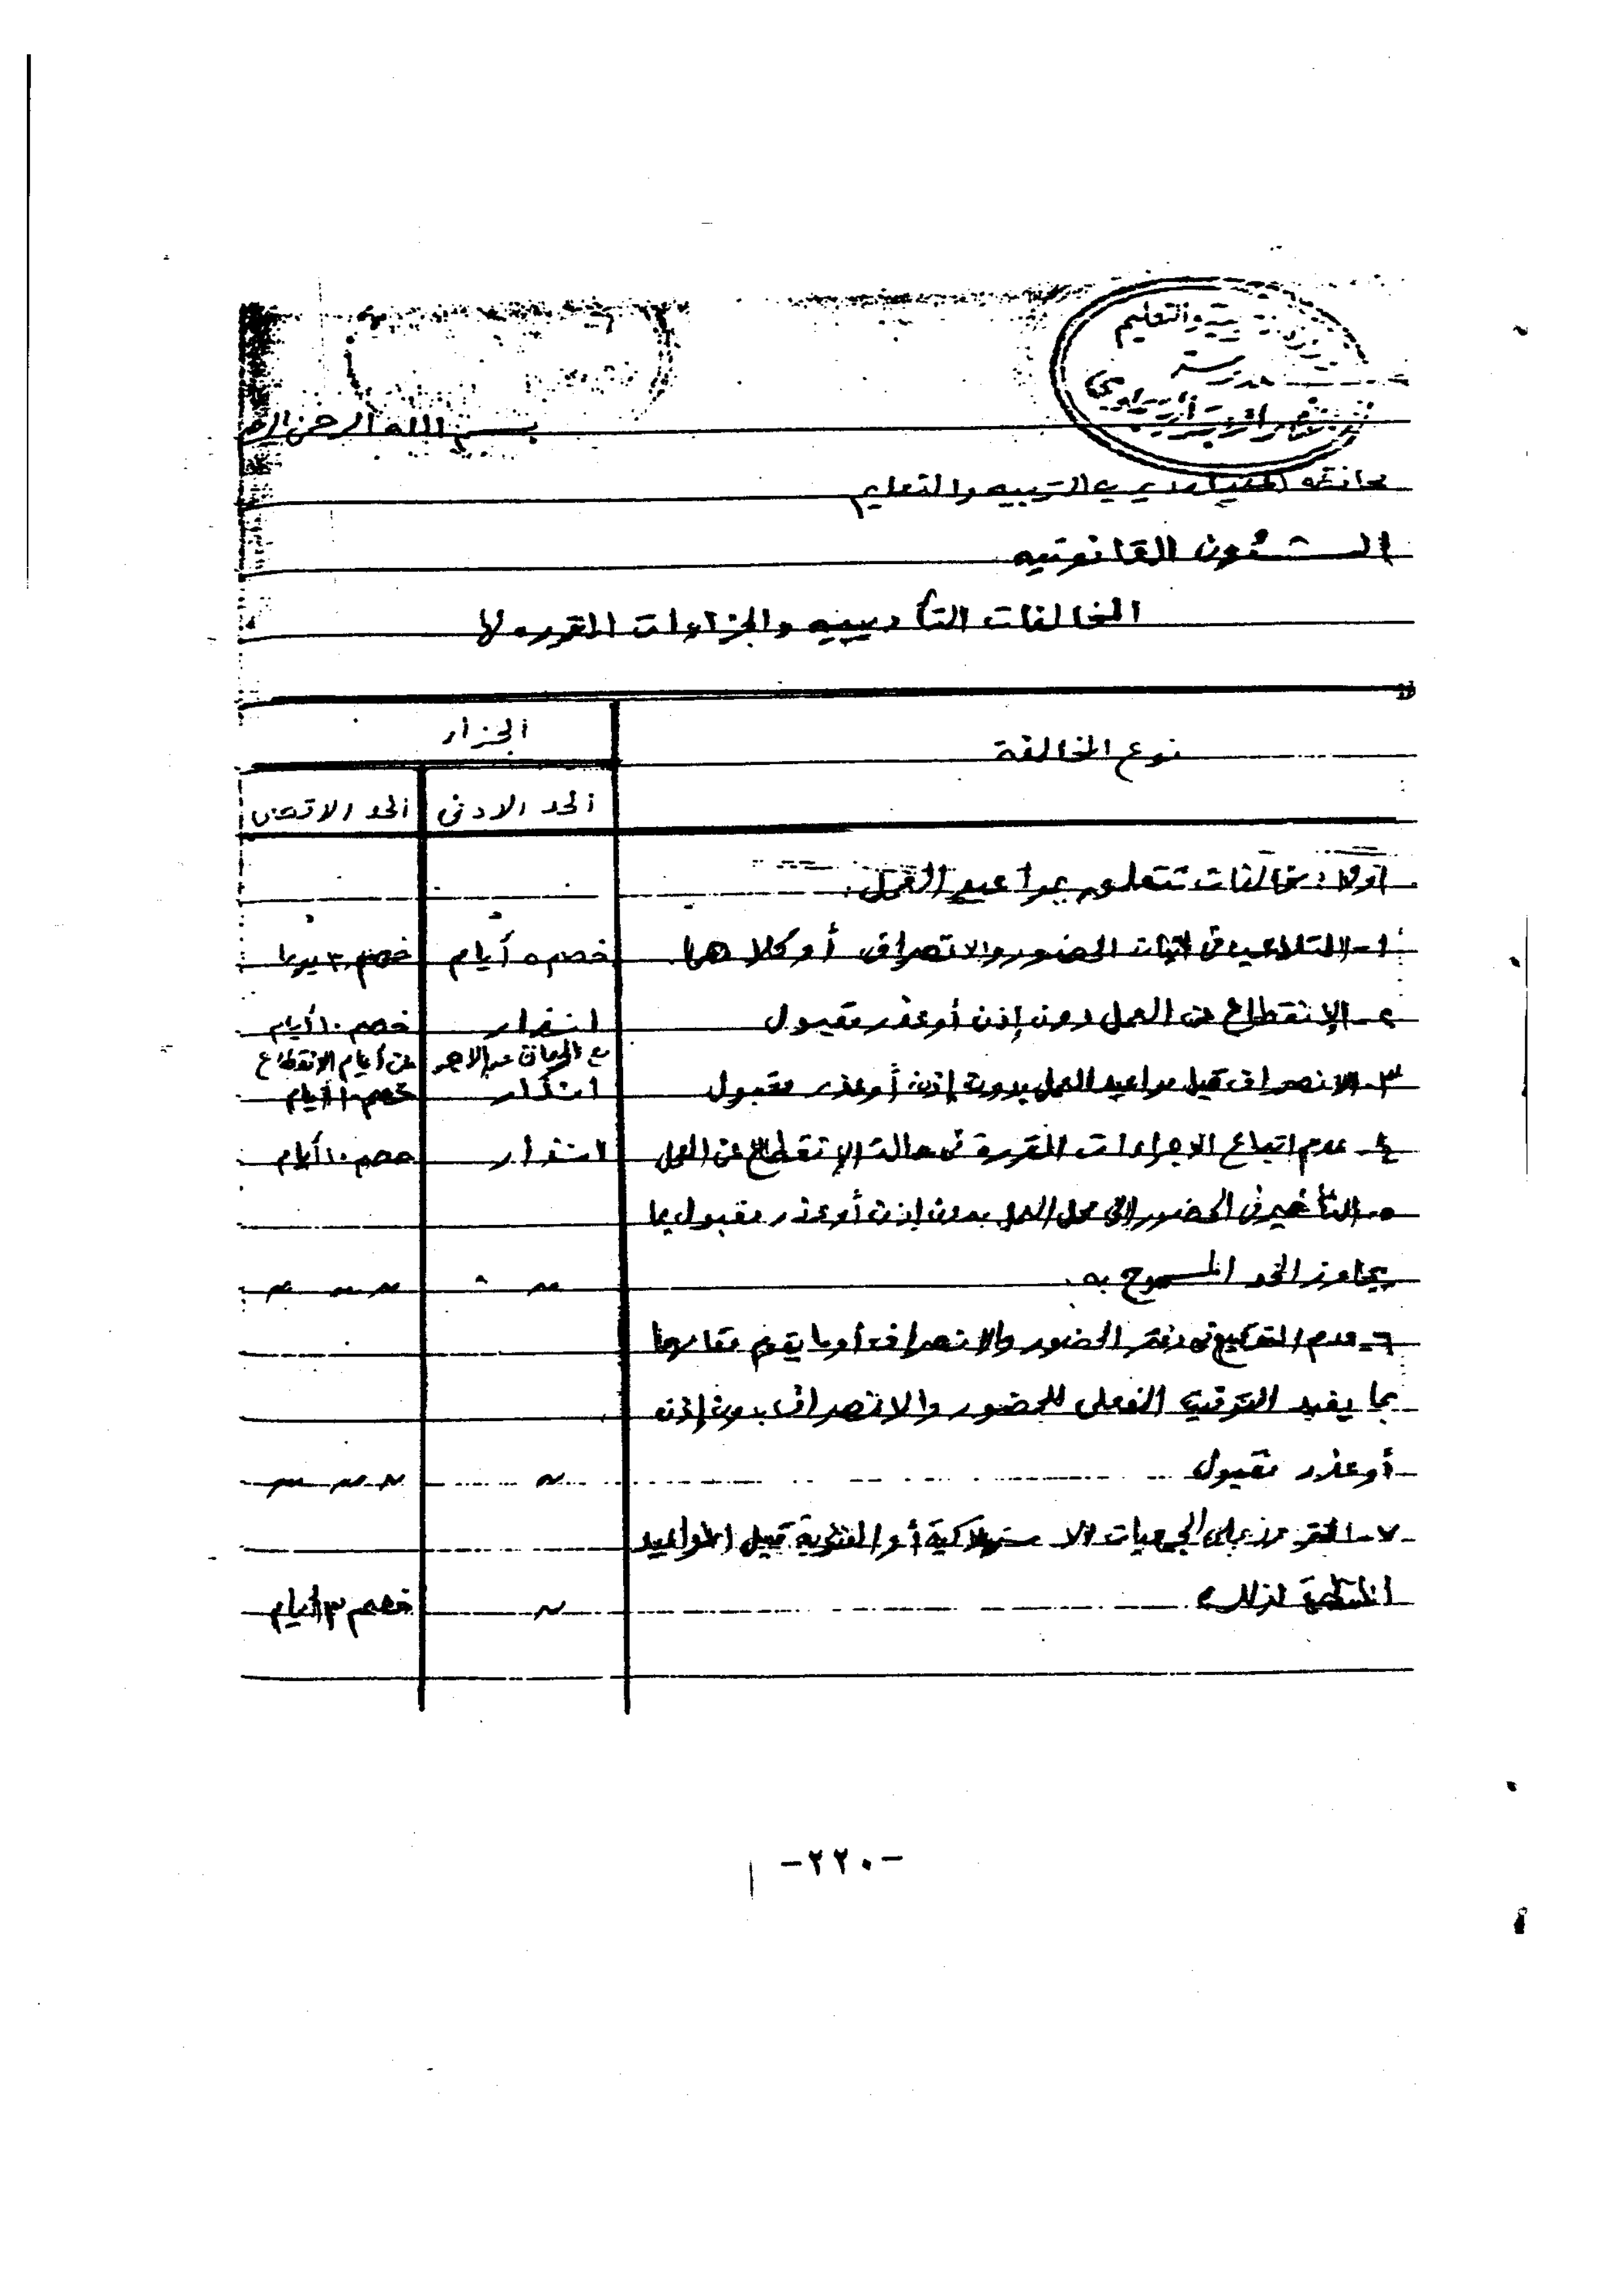 والتعليم
مدرسة
بسم الله الرحمن الرحيم
محافظة المنيا مديرية التربيه والتعليم
الشئون القانونيه
المخالفات التأديبيه والجزاءات المقرره لها
نوع المخالفة الجزاء
الحد الادنى الحد الاقصى
اولا: مخالفات تتعلق بمواعيد العمل:
١- التلاعب فى اثبات الحضور والانصراف أو كلاهما. خصم ٥ أيام خصم ٣٠ يوما
٢- الإنقطاع عن العمل دون إذن أو عذر مقبول انذار خصم ١٠ أيام
مع الحرمان من الاجر عن أيام الانقطاع
٣- الانصراف قبل مواعيد العمل بدون إذن أو عذر مقبول انذار خصم ١٠ أيام
٤- عدم اتباع الاجراءات المقررة فى حالة الإنقطاع عن العمل انذار خصم ١٠ أيام
٥- التأخير فى الحضور الى محل العمل بدون إذن أو عذر مقبول بما
يجاوز الحد المسموح به. 〃 〃 〃 〃
٦- عدم التوقيع فى دفتر الحضور والانصراف أو ما يقوم مقامهما
بما يفيد التوقيت الفعلى للحضور والانصراف بدون إذن
أو عذر مقبول 〃 〃 〃 〃
٧- على الجمعيات الاستهلاكية أو الفئوية قبل المواعيد
المنظمة لذلك 〃 خصم ٣ أيام
-٢٢٠-